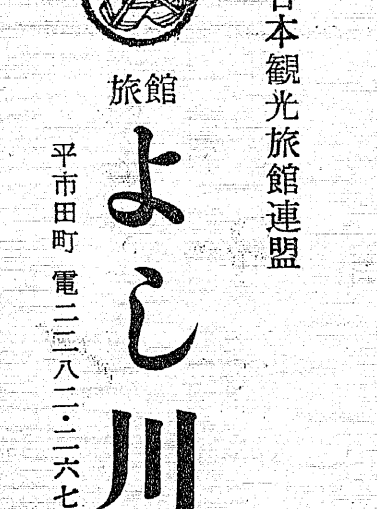 日本観光旅館連盟
旅館
よし川
平市田町 電二二八二・二六七